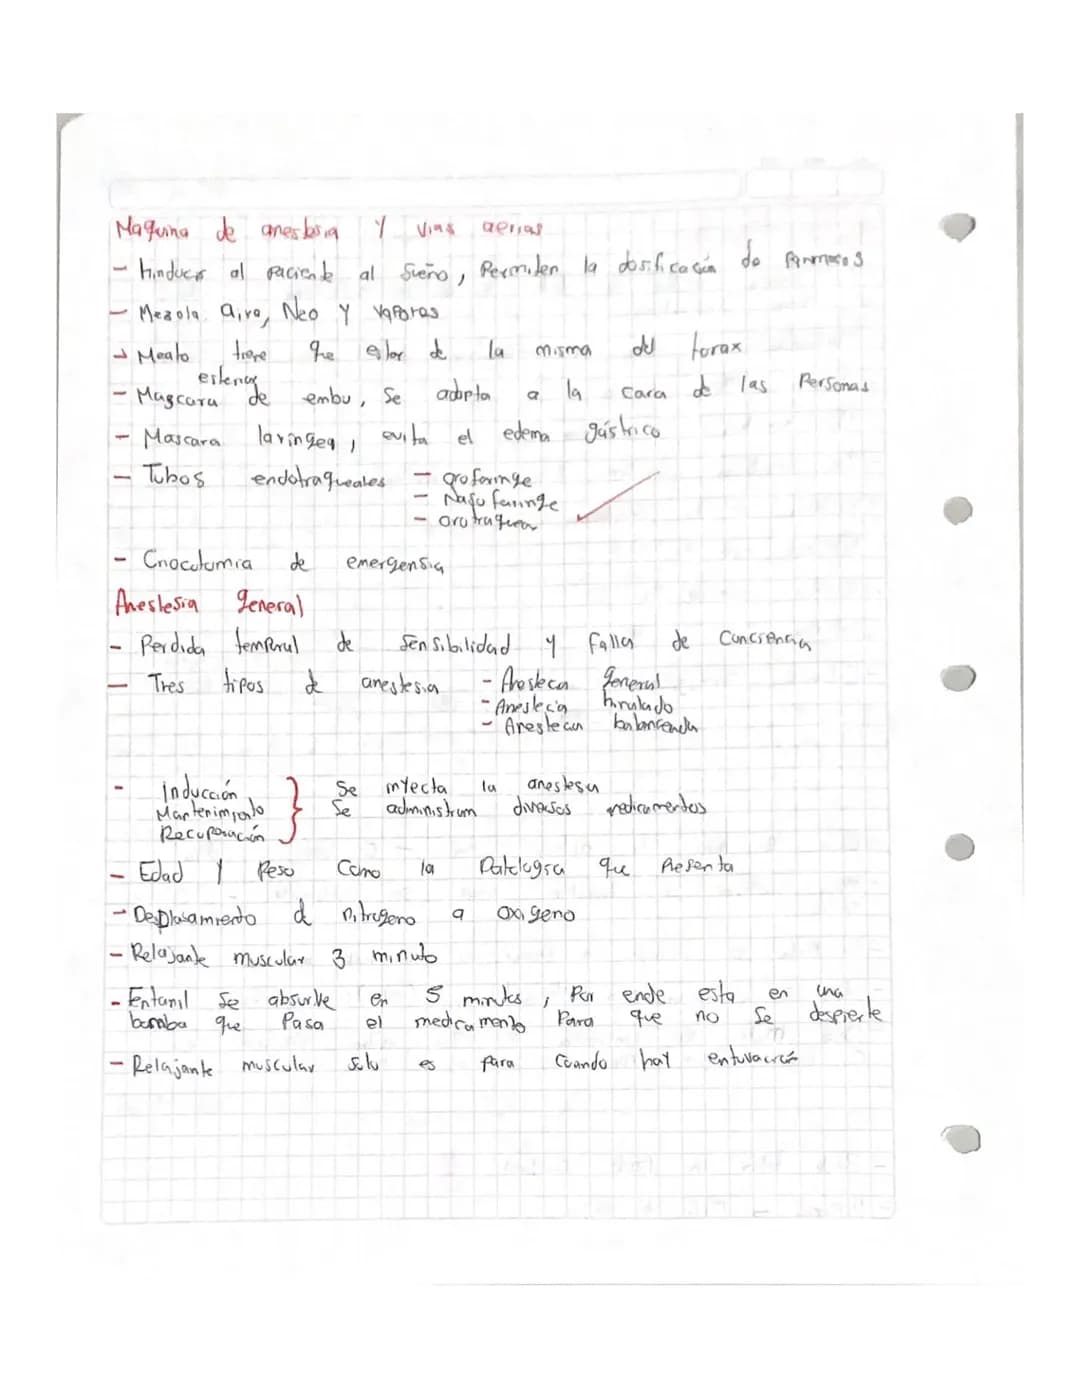 Maquina de anestesia y vias aerias
- hinducir al paciente al sueño, Permiten la dosificación de farmacos
- Mezcla aire, Neo y vapores
→ Meato tiene que estar de la misma del torax
estenar
- Mascara de embu, Se adapta a la cara de las Personas
- Mascara laringea, evita el edema gástrico
- Tubos endotraqueales - orofaringe
- Nasofaringe
- orotraquea
- Cricotomia de emergensia
Anestesia general
- Perdida temporal de Sensibilidad y Falla de Conciencia
- Tres tipos de anestesia - Anestecia General
- Anestecia
- Anestecia balanceada
- Inducción Se inyecta la anestesia
Mantenimiento Se administran diversos medicamentos
Recuperación
- Edad y Peso Como la Patologia que Presenta
- Desplasamiento de nitrogeno a oxigeno
- Relajante muscular 3 minuto
- Fentanil Se absurve en 5 minutos, Por ende esta en una
bomba que Pasa el medicamento Para que no Se despierte
- Relajante muscular solo es para Cuando hay entuvación